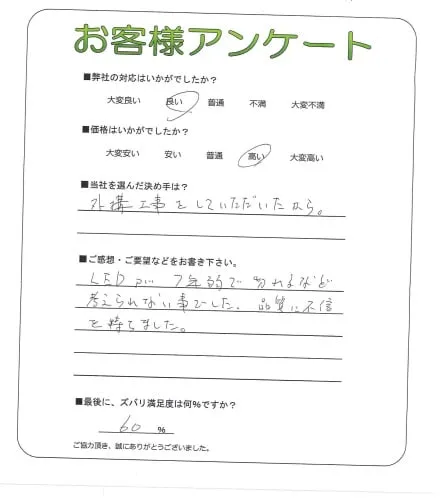 お客様アンケート
■弊社の対応はいかがでしたか？
大変良い 良い 普通 不満 大変不満
■価格はいかがでしたか？
大変安い 安い 普通 高い 大変高い
■当社を選んだ決め手は？
外構工事をしていただいたから。
■ご感想・ご要望などをお書き下さい。
LEDが7年弱で切れるなど
考えられない事でした、品質に不信
を持ちました。
■最後に、ズバリ満足度は何%ですか？
60 %
ご協力頂き、誠にありがとうございました。